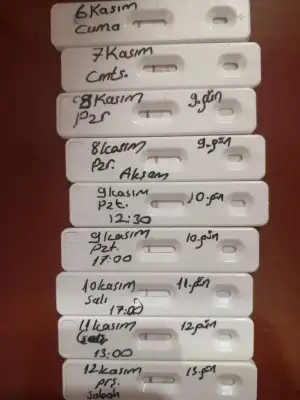 6 Kasım
Cuma
7 Kasım
Cmts.
8 Kasım 9.gün
Pzr
8 Kasım 9.gün
Pzr.
Akşam
9 Kasım 10.gün
Pzt.
12:30
9 Kasım 10.gün
Pzt.
17:00
10 Kasım 11.gün
Salı
17:00
11 Kasım 12.gün
13:00
12 Kasım 13.gün
prş.
Sabah